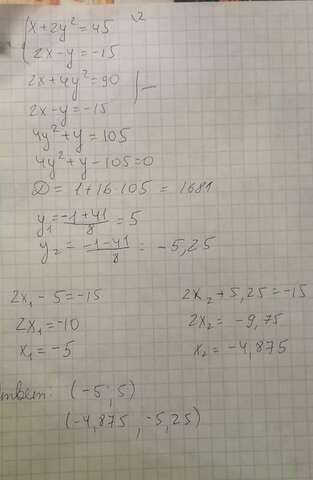 x+2y²=45 |·2
2x-y=-15
2x+4y²=90 | -
2x-y=-15
4y²+y=105
4y²+y-105=0
D=1+16·105=1681
y₁=(-1+41)/8=5
y₂=(-1-41)/8=-5,25
2x₁-5=-15 2x₂+5,25=-15
2x₁=-10 2x₂=-9,75
x₁=-5 x₂=-4,875
Ответ: (-5;5)
(-4,875,-5,25)